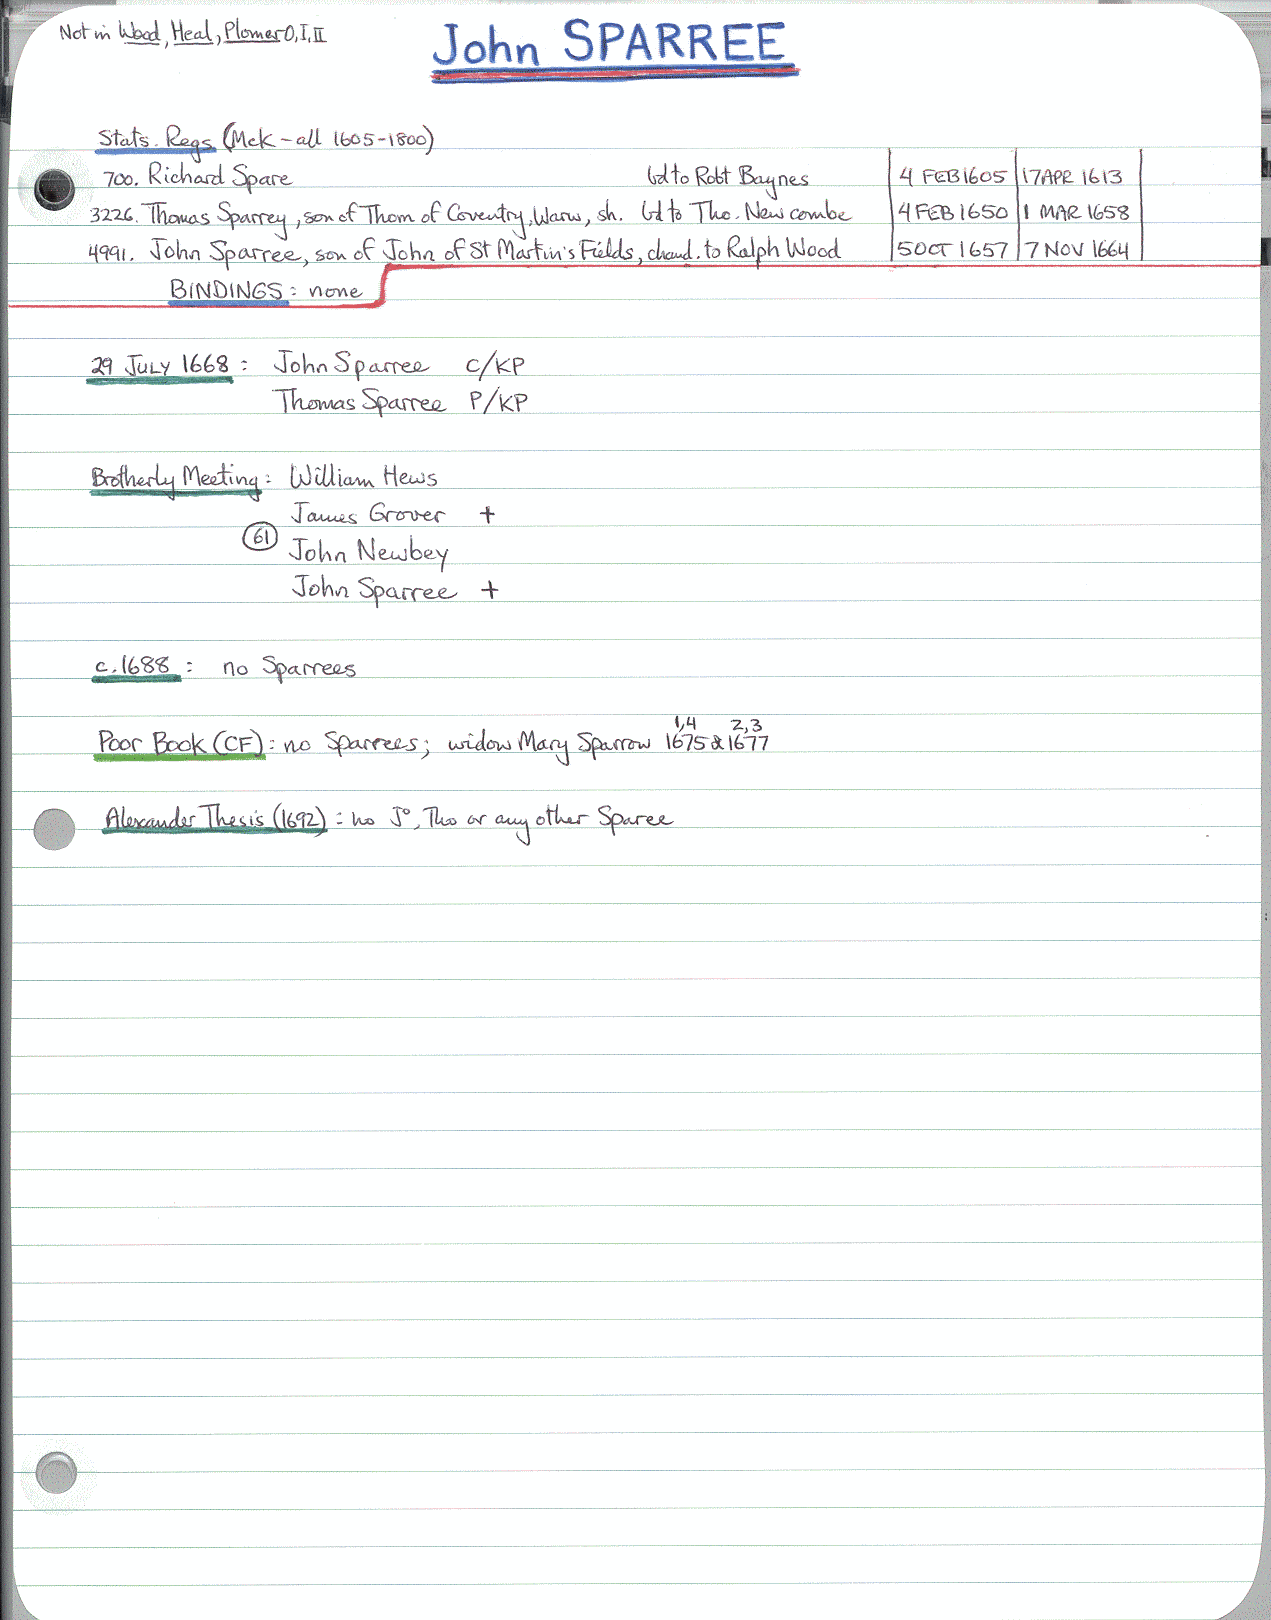 Not in Wood, Heal, Plomer 0, I, II
John SPARREE
Stats. Regs (McK - all 1605-1800)
700. Richard Spare bd to Robt Baynes 4 FEB 1605 17 APR 1613
3226. Thomas Sparrey, son of Thom of Coventry, Warw, sh. bd to Tho. Newcombe 4 FEB 1650 1 MAR 1658
4991. John Sparree, son of John of St Martin's Fields, chand. to Ralph Wood 5 OCT 1657 7 NOV 1664
BINDINGS: none
29 JULY 1668: John Sparree C/KP
Thomas Sparree P/KP
Brotherly Meeting: William Hews
James Grover +
61
John Newbey
John Sparree +
c.1688: no Sparrees
1,4 2,3
Poor Book (CF): no Sparrees; widow Mary Sparrow 1675 & 1677
Alexander Thesis (1692): no Jº, Tho or any other Sparee